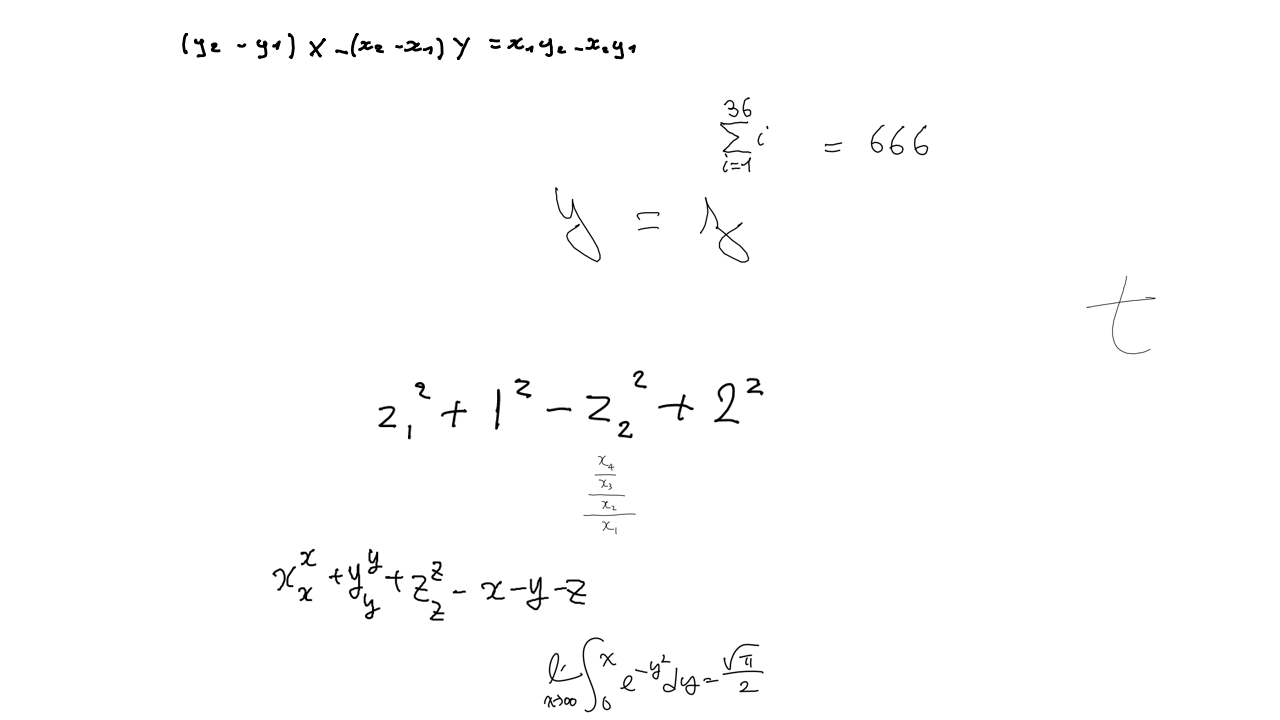 (y₂ - y₁) X - (x₂ - x₁) Y = x₁y₂ - x₂y₁
\sum_{i=1}^{36} i = 666
y = sy
t
z_1^2 + 1^2 - z_2^2 + 2^2
\frac{\frac{\frac{x_4}{x_3}}{x_2}}{x_1}
x_x^x + y_y^y + z_z^z - x - y - z
\lim_{x→∞} \int_0^x e^{-y^2} dy = \frac{\sqrt{π}}{2}